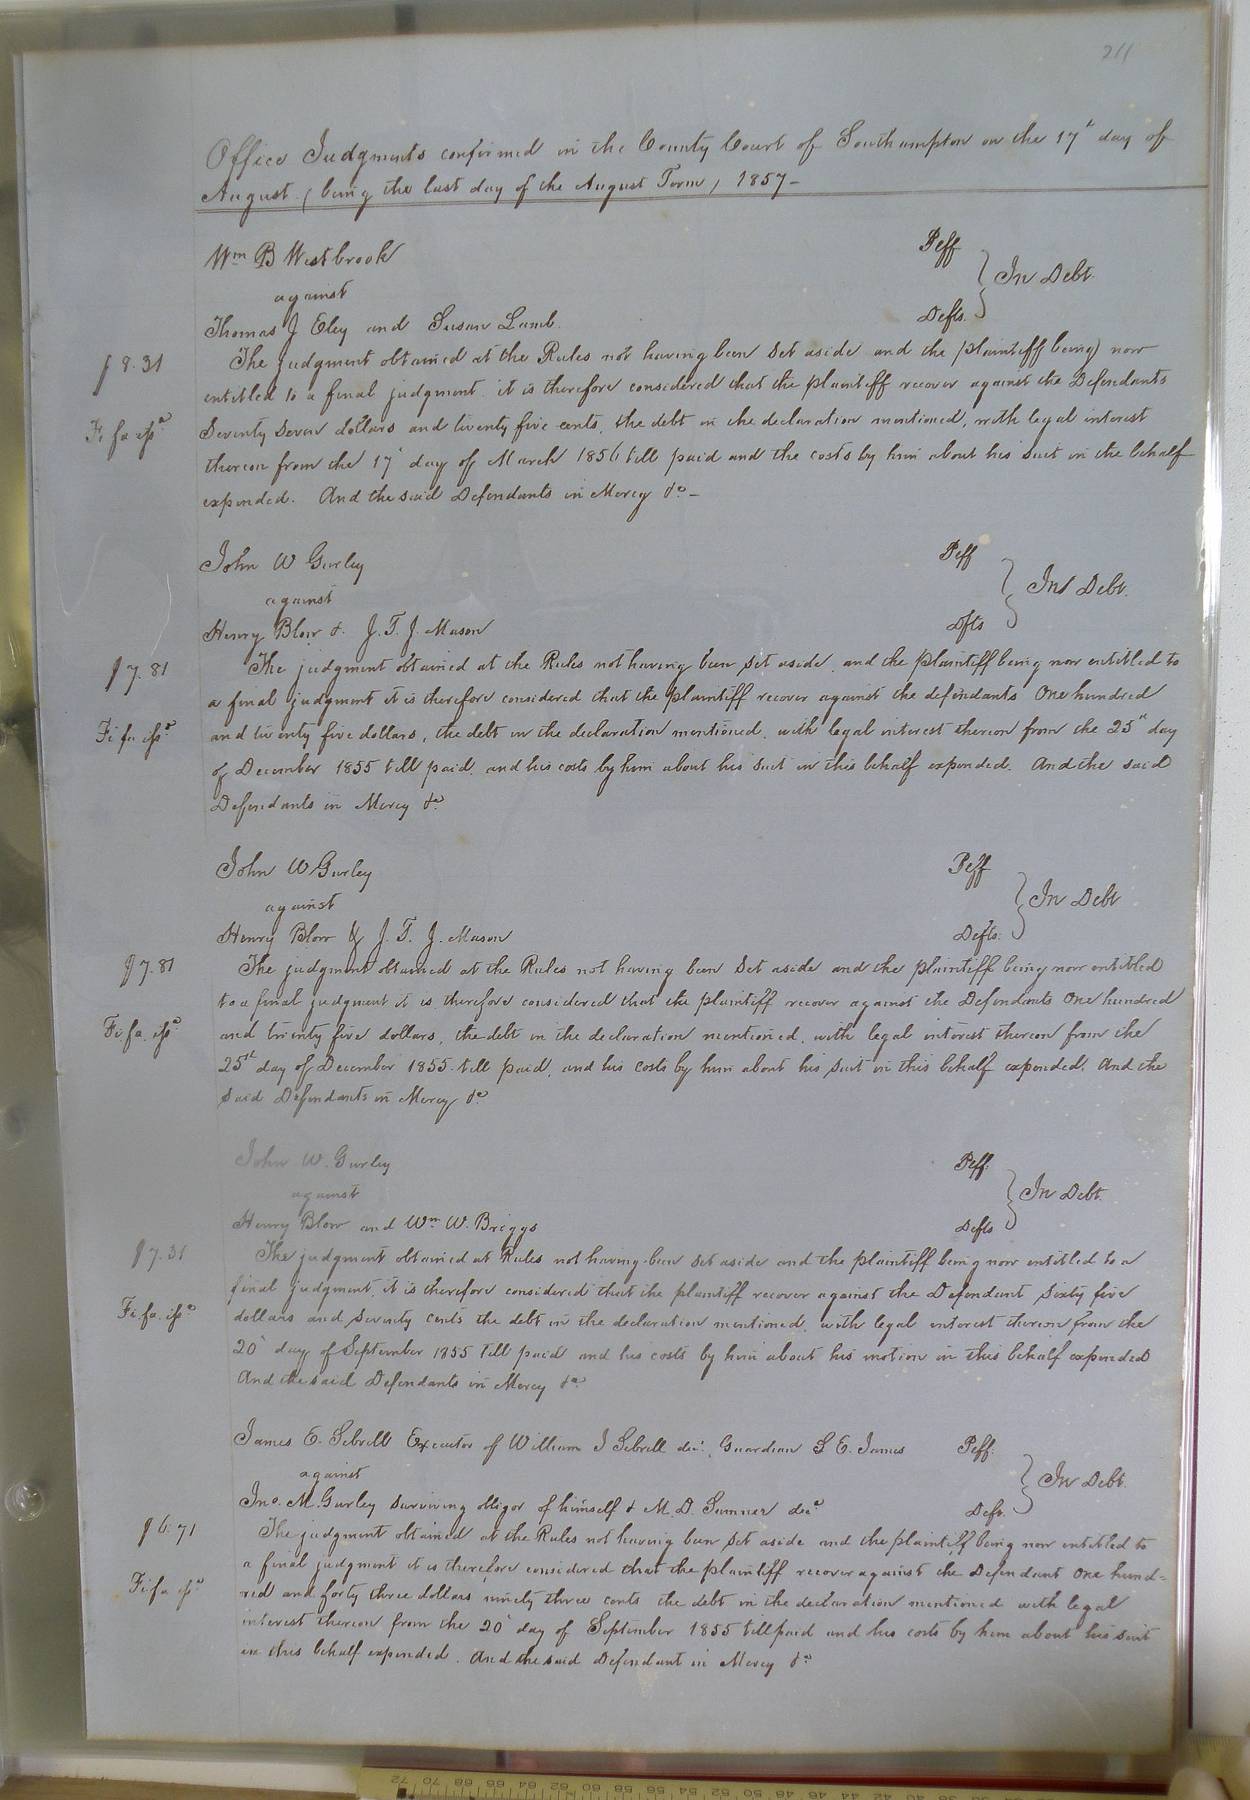 211
Office Judgments confirmed in the County Court of Southampton on the 17th day of
August (being the last day of the August Term) 1857 -
Wm B Westbrook Plff
against } In Debt.
Thomas J Eley and Susan Lamb. Defts.
8.31 The judgment obtained at the Rules not having been set aside and the (plaintiff being) now
entitled to a final judgment it is therefore considered that the plaintiff recover against the Defendants
Fi fa issd Seventy Seven dollars and twenty five cents, the debt in the declaration mentioned, with legal interest
thereon from the 17th day of March 1856 till paid and the costs by him about his suit in the behalf
expended. And the said Defendants in Mercy &c -
John W Gurley Plff
against } In Debt.
Henry Blow & J. T. J. Mason Defts
7.81 The judgment obtained at the Rules not having been set aside, and the plaintiff being now entitled to
a final judgment it is therefore considered that the plaintiff recover against the defendants One hundred
Fi fa issd and twenty five dollars, the debt in the declaration mentioned, with legal interest thereon from the 25th day
of December 1855 till paid, and his costs by him about his suit in this behalf expended. And the said
Defendants in Mercy &c
John W Gurley Plff
against } In Debt
Henry Blow & J. T. J. Mason Defts.
7.81 The judgment obtained at the Rules not having been set aside and the plaintiff being now entitled
to a final judgment it is therefore considered that the plaintiff recover against the Defendants One hundred
Fi. fa. issd and twenty five dollars, the debt in the declaration mentioned, with legal interest thereon from the
25th day of December 1855 till paid, and his costs by him about his suit in this behalf expended. And the
said Defendants in Mercy &c
John W. Gurley Plff.
against } In Debt.
Henry Blow and Wm W. Briggs Defts
7.31 The judgment obtained at Rules not having been set aside and the plaintiff being now entitled to a
final judgment, it is therefore considered that the plaintiff recover against the Defendant Sixty five
Fi. fa. issd dollars and seventy cents the debt in the declaration mentioned, with legal interest thereon from the
20th day of September 1855 till paid and his costs by him about his motion in this behalf expended
And the said Defendants in Mercy &c
James E. Sebrell Executor of William J Sebrell decd. Guardian S E. James Plff.
against } In Debt.
Jno. M. Gurley surviving obligor of himself & M. D. Sumner decd Deft.
6.71 The judgment obtained at the Rules not having been set aside and the plaintiff being now entitled to
a final judgment it is therefore considered that the plaintiff recover against the Defendant One hund=
Fi fa issd red and forty three dollars ninety three cents the debt in the declaration mentioned with legal
interest thereon from the 20th day of September 1855 till paid and his costs by him about his suit
in this behalf expended. And the said Defendant in Mercy &c
72 70 68 66 64 62 60 58 56 54 52 50 48 46 44 42